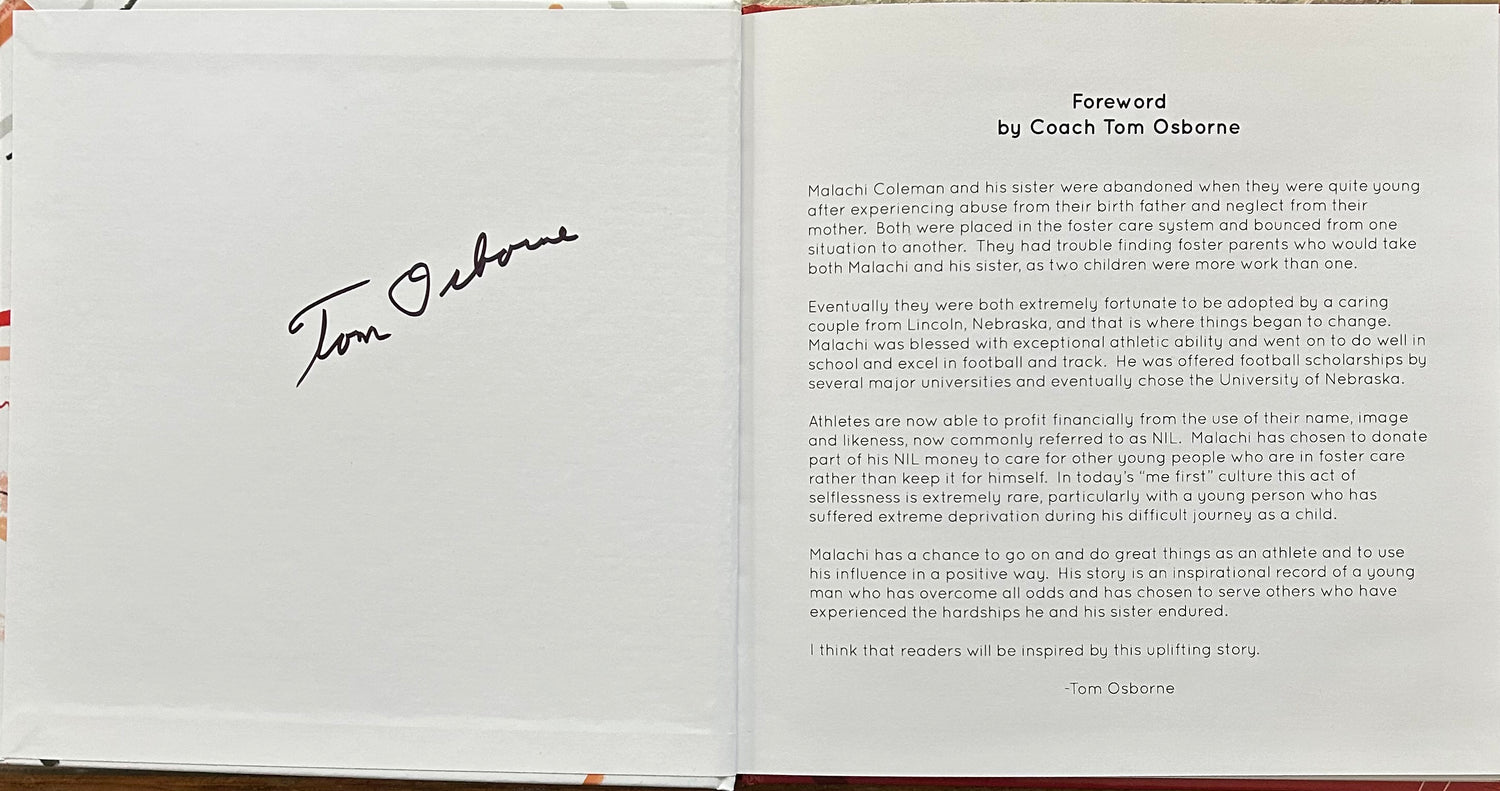 Tom Osborne
Foreword
by Coach Tom Osborne
Malachi Coleman and his sister were abandoned when they were quite young
after experiencing abuse from their birth father and neglect from their
mother. Both were placed in the foster care system and bounced from one
situation to another. They had trouble finding foster parents who would take
both Malachi and his sister, as two children were more work than one.
Eventually they were both extremely fortunate to be adopted by a caring
couple from Lincoln, Nebraska, and that is where things began to change.
Malachi was blessed with exceptional athletic ability and went on to do well in
school and excel in football and track. He was offered football scholarships by
several major universities and eventually chose the University of Nebraska.
Athletes are now able to profit financially from the use of their name, image
and likeness, now commonly referred to as NIL. Malachi has chosen to donate
part of his NIL money to care for other young people who are in foster care
rather than keep it for himself. In today's “me first” culture this act of
selflessness is extremely rare, particularly with a young person who has
suffered extreme deprivation during his difficult journey as a child.
Malachi has a chance to go on and do great things as an athlete and to use
his influence in a positive way. His story is an inspirational record of a young
man who has overcome all odds and has chosen to serve others who have
experienced the hardships he and his sister endured.
I think that readers will be inspired by this uplifting story.
-Tom Osborne